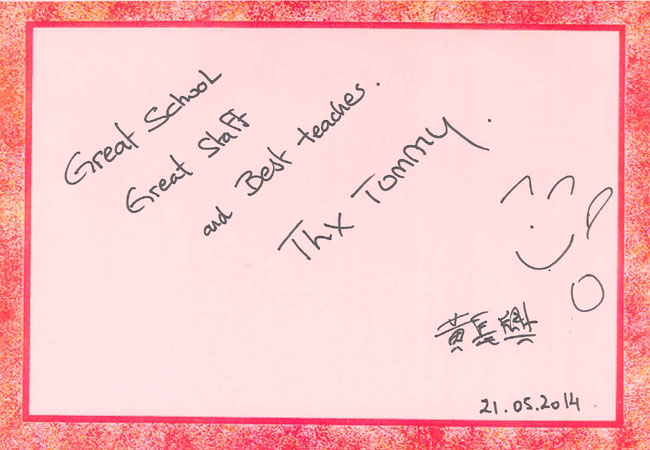 Great School
Great Staff
and Best teaches.
Thx Tommy.
黄長興
21.05.2014